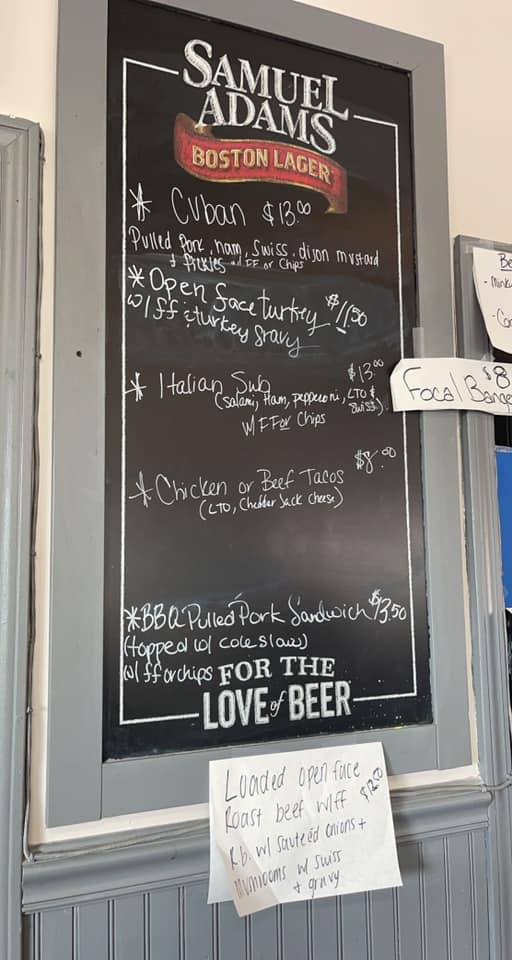 SAMUEL
ADAMS
BOSTON LAGER
* Cuban $13.00
Pulled Pork, ham, Swiss, dijon mustard
+ Pickles w/ FF or Chips
* Open face turkey $11.50
w/ ff & turkey gravy
* Italian Sub $13.00
(Salami, Ham, pepperoni, LTO &
Swiss)
W/ FF or Chips
* Chicken or Beef Tacos $8.00
(LTO, Cheddar Jack Cheese)
*BBQ Pulled Pork Sandwich $13.50
(topped w/ coleslaw)
w/ ff or chips
FOR THE
LOVE of BEER
Loaded open face
Roast beef w/ff
R.b. w/ sauteéd onions +
w/ swiss
+ gravy
Be
$8